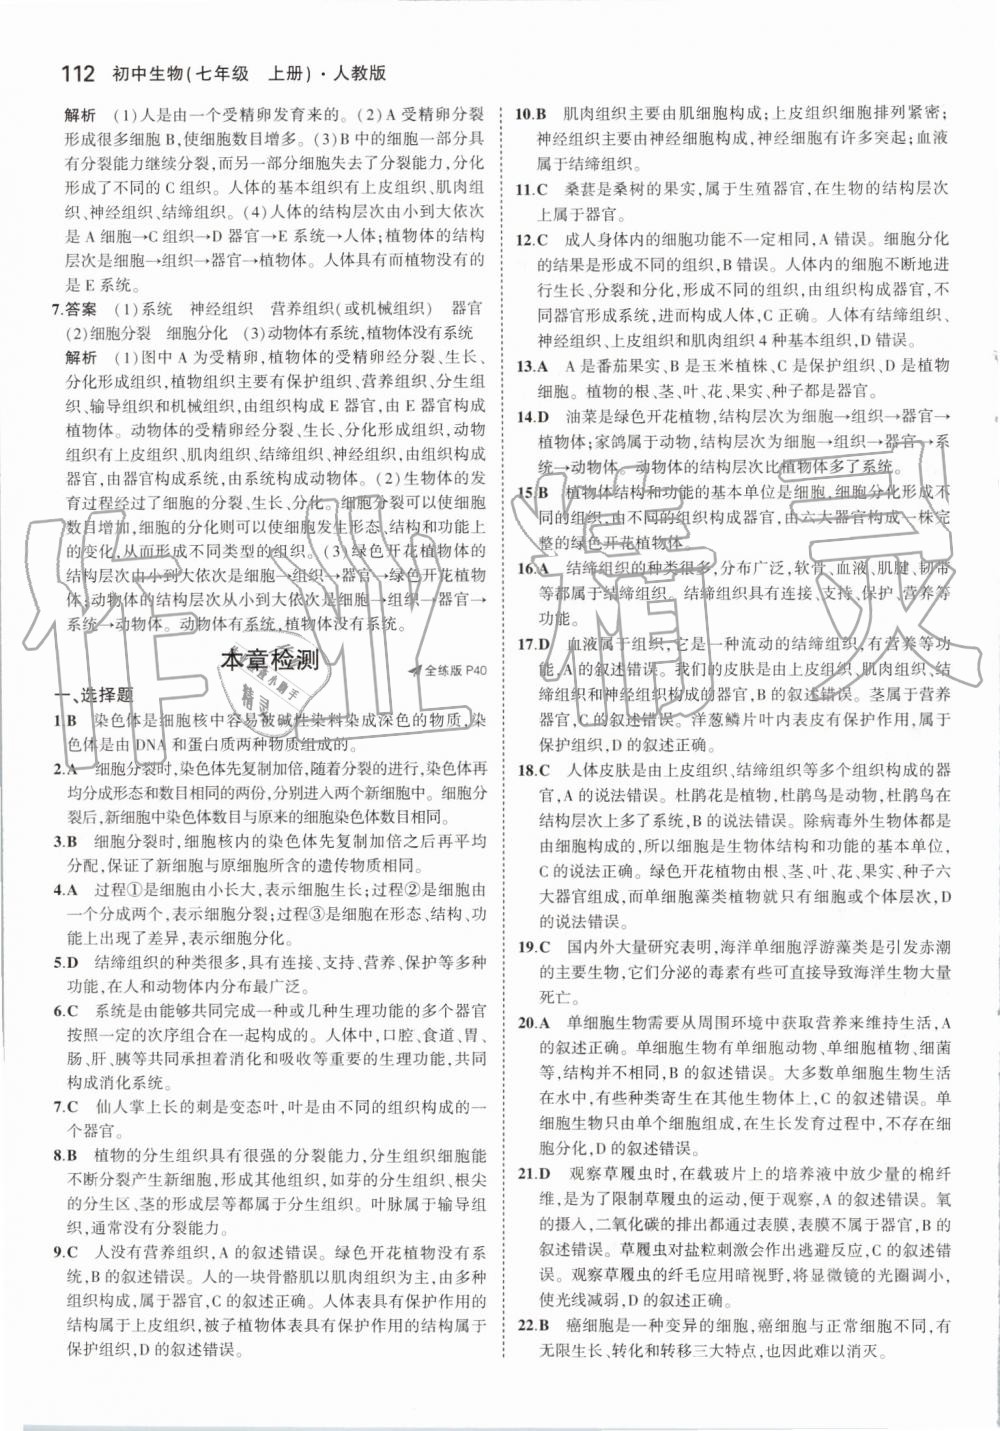 112 初中生物(七年级 上册)·人教版
解析 (1)人是由一个受精卵发育来的。(2)A受精卵分裂
形成很多细胞B,使细胞数目增多。(3)B中的细胞一部分具
有分裂能力继续分裂,而另一部分细胞失去了分裂能力,分化
形成了不同的C组织。人体的基本组织有上皮组织、肌肉组
织、神经组织、结缔组织。(4)人体的结构层次由小到大依次
是A细胞→C组织→D器官→E系统→人体;植物体的结构
层次是细胞→组织→器官→植物体。人体具有而植物体没有的
是E系统。
7.答案 (1)系统 神经组织 营养组织(或机械组织) 器官
(2)细胞分裂 细胞分化 (3)动物体有系统,植物体没有系统
解析 (1)图中A为受精卵,植物体的受精卵经分裂、生长、
分化形成组织,植物组织主要有保护组织、营养组织、分生组
织、输导组织和机械组织,由组织构成E器官,由E器官构成
植物体。动物体的受精卵经分裂、生长、分化形成组织,动物
组织有上皮组织、肌肉组织、结缔组织和神经组织,由组织构成
器官,由器官构成系统,由系统构成动物体。(2)生物体的发
育过程经过了细胞的分裂、生长、分化。细胞分裂可以使细胞
数目增加,细胞的分化则可以使细胞发生形态、结构和功能上
的变化,从而形成不同类型的组织。(3)绿色开花植物体的
结构层次由小到大依次是细胞→组织→器官→绿色开花植物
体;动物体的结构层次从小到大依次是细胞→组织→器官→
系统→动物体。动物体有系统,植物体没有系统。
本章检测
全练版P40
一、选择题
1.B 染色体是细胞核中容易被碱性染料染成深色的物质,染
色体是由DNA和蛋白质两种物质组成的。
2.A 细胞分裂时,染色体先复制加倍,随着分裂的进行,染色体再
均分成形态和数目相同的两份,分别进入两个新细胞中。细胞分
裂后,新细胞中染色体数目与原细胞的染色体数目相同。
3.B 细胞分裂时,细胞核内的染色体先复制加倍之后再平均
分配,保证了新细胞与原细胞所含的遗传物质相同。
4.A 过程①是细胞由小长大,表示细胞生长;过程②是细胞由
一个分成两个,表示细胞分裂;过程③是细胞在形态、结构、功
能上出现了差异,表示细胞分化。
5.D 结缔组织的种类很多,具有连接、支持、营养、保护等多种功
能,在人和动物体内分布最广泛。
6.C 系统是由能够共同完成一种或几种生理功能的多个器官
按照一定的次序组合在一起构成的。人体中,口腔、食道、胃、
肠、肝、胰等共同承担着消化和吸收等重要的生理功能,共同
构成消化系统。
7.C 仙人掌上长的刺是变态叶,叶是由不同的组织构成的一
个器官。
8.B 植物的分生组织具有很强的分裂能力,分生组织细胞能
不断分裂产生新细胞,形成其他组织,如芽的分生组织、根尖
的分生区、茎的形成层等都属于分生组织。叶脉属于输导组
织,通常没有分裂能力。
9.C 人没有营养组织,A的叙述错误。绿色开花植物没有系
统,B的叙述错误。人的一块骨骼肌以肌肉组织为主,由多种
组织构成,属于器官,C的叙述正确。人体表具有保护作用的
结构属于上皮组织,被子植物体表具有保护作用的结构属于
保护组织,D的叙述错误。
10.B 肌肉组织主要由肌细胞构成;上皮组织细胞排列紧密;
神经组织主要由神经细胞构成,神经细胞有许多突起;血液
属于结缔组织。
11.C 桑葚是桑树的果实,属于生殖器官,在生物的结构层次
上属于器官。
12.C 成人身体内的细胞功能不一定相同,A错误。细胞分化
的结果是形成不同的组织,B错误。人体内的细胞不断地进
行生长、分裂和分化,形成不同的组织,由组织构成器官,不
同器官形成系统,进而构成人体,C正确。人体有结缔组织、
神经组织、上皮组织和肌肉组织4种基本组织,D错误。
13.A A是番茄果实、B是玉米植株、C是保护组织、D是植物
细胞。植物的根、茎、叶、花、果实、种子都是器官。
14.D 油菜是绿色开花植物,结构层次为细胞→组织→器官→
植物体;家鸽属于动物,结构层次为细胞→组织→器官→系
统→动物体。动物体的结构层次比植物体多了系统。
15.B 植物体结构和功能的基本单位是细胞,细胞分化形成不
同的组织,由不同的组织构成器官,由六大器官构成一株完
整的绿色开花植物体。
16.A 结缔组织的种类很多,分布广泛,软骨、血液、肌腱、韧带
等都属于结缔组织。结缔组织具有连接、支持、保护、营养等
功能。
17.D 血液属于结缔组织,它是一种流动的结缔组织,有营养等功
能,A的叙述错误。我们吃的大米属于果实,果实是由以营养组
织和分生组织构成的器官,B的叙述错误。茎属于营养
器官,C的叙述错误。洋葱鳞片叶内表皮有保护作用,属于
保护组织,D的叙述正确。
18.C 人体皮肤是由上皮组织、结缔组织等多个组织构成的器
官,A的说法错误。杜鹃花是植物,杜鹃鸟是动物,杜鹃鸟在
结构层次上多了系统,B的说法错误。除病毒外生物体都是
由细胞构成的,所以细胞是生物体结构和功能的基本单
位,C的说法正确。绿色开花植物由根、茎、叶、花、果实、种子六
大器官组成,而单细胞藻类植物就只有细胞或个体层次,D
的说法错误。
19.C 国内外大量研究表明,海洋单细胞浮游藻类是引发赤潮
的主要生物,它们分泌的毒素有些可直接导致海洋生物大量
死亡。
20.A 单细胞生物需要从周围环境中获取营养来维持生活,A
的叙述正确。单细胞生物有单细胞动物、单细胞植物、细菌
等,如草履虫、衣藻等,B的叙述错误。大多数单细胞生物生活
在水中,有些种类寄生在其他生物体内,C的叙述错误。单
细胞生物只由单个细胞组成,在生长发育过程中,不存在细
胞分化,D的叙述错误。
21.D 观察草履虫时,在载玻片上的培养液中放少量的棉纤
维,是为了限制草履虫的运动,便于观察,A的叙述错误。氧
的摄入,二氧化碳的排出都通过表膜,表膜不属于器官,B的
叙述错误。草履虫对盐粒刺激会作出逃避反应,C的叙述错
误。观察草履虫的纤毛应用暗视野,将显微镜的光圈调小,
使光线减弱,D的叙述正确。
22.B 癌细胞是一种变异的细胞,癌细胞与正常细胞不同,有
无限生长、转化和转移三大特点,也因此难以消灭。
作业精灵